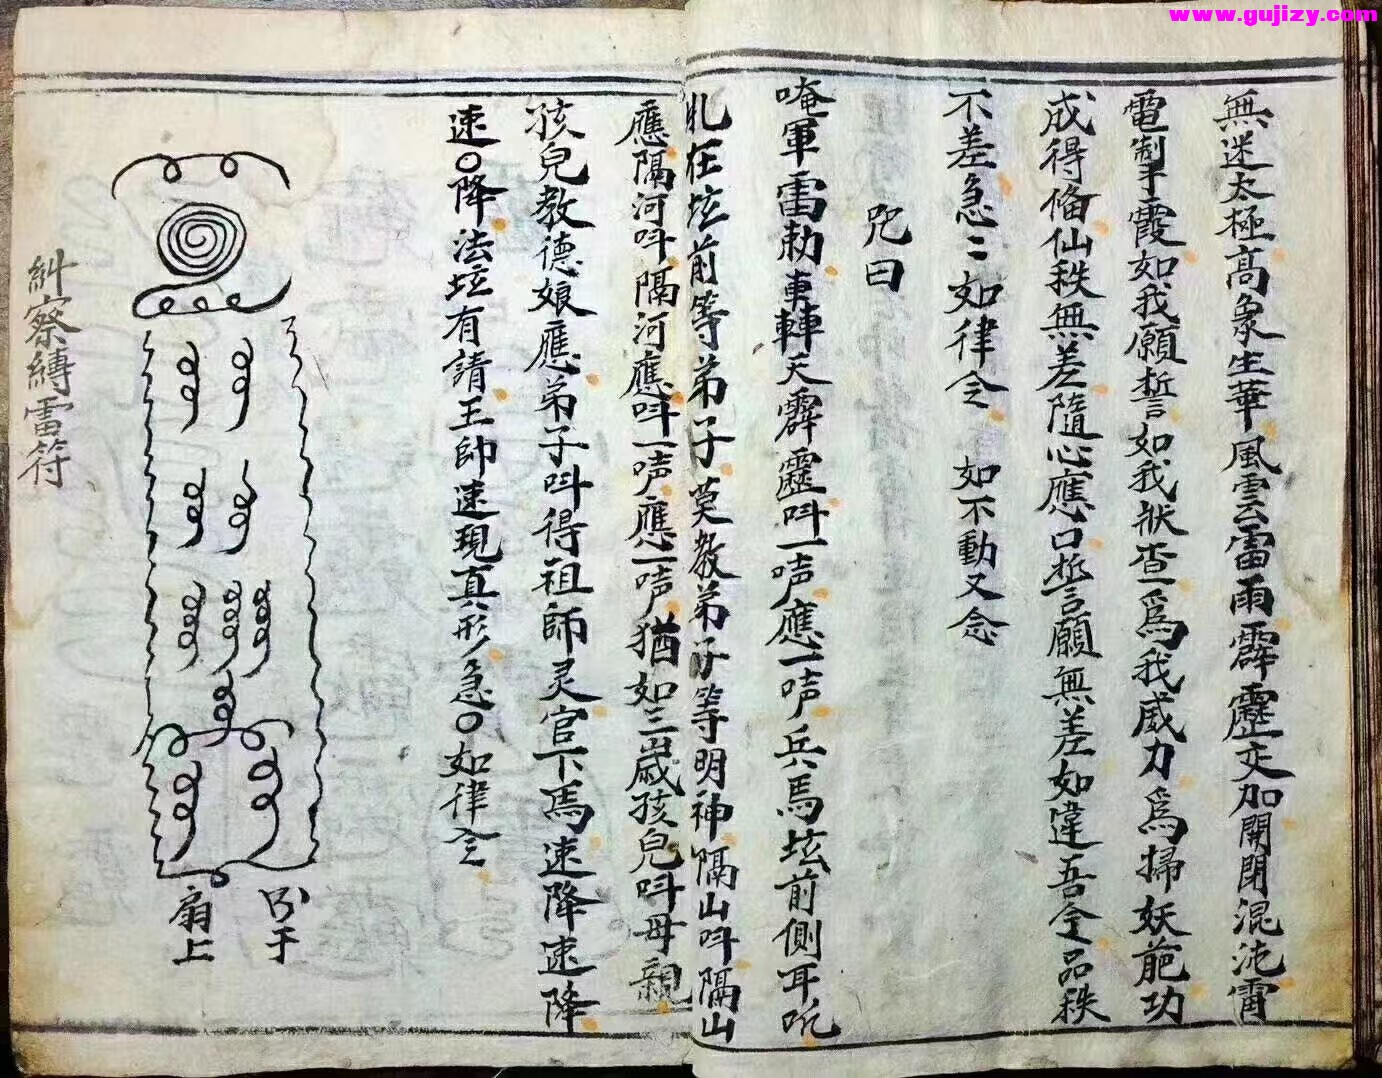 www.gujizy.com
無迷太極高象生華風雲雷雨霹靂交加開閉混沌雷
電掣霞如我願誓如我狀杳一為我威力為掃妖葩功
成得脩仙秩無差隨心應口誓願無差如違吾令品秩
不差急〻如律令 如不動又念
咒曰
唵軍雷勅車轉天霹靂呌一声應一声兵馬坛前側耳吼
扎在坛前等弟子莫教弟子等明神隔山呌隔山
應隔河呌隔河應呌一声應一声猶如三歲孩兒呌母親
孩兒教德娘應弟子呌得祖師灵官下馬速降速降
速〇降法坛有請王師速現真形急〇如律令
于
扇上
糾察縛雷符